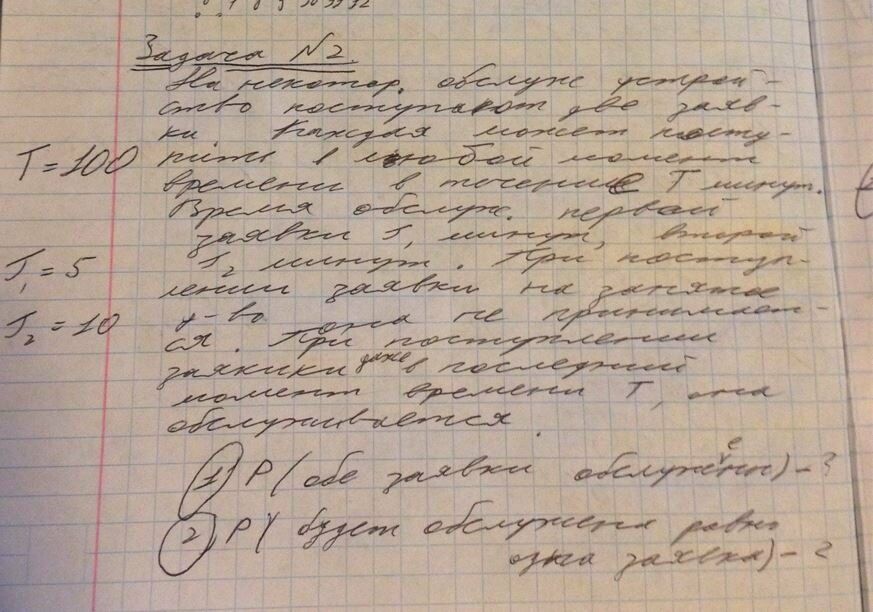 Задача №2.
На некотор. обслуж устрой-
ство поступают две заяв-
ки. Каждая может посту-
T=100 пить в любой момент
времени в течение T минут.
Время обслуж. первой
заявки τ₁ минут, второй
τ₁=5 τ₂ минут. При поступ-
лении заявки на занятое
τ₂=10 у-во она не принимает-
ся. При поступлении
заявки даже в последний
момент времени T, она
обслуживается.
1) P(обе заявки обслужены) - ?
2) P(будет обслужена ровно
одна заявка) - ?